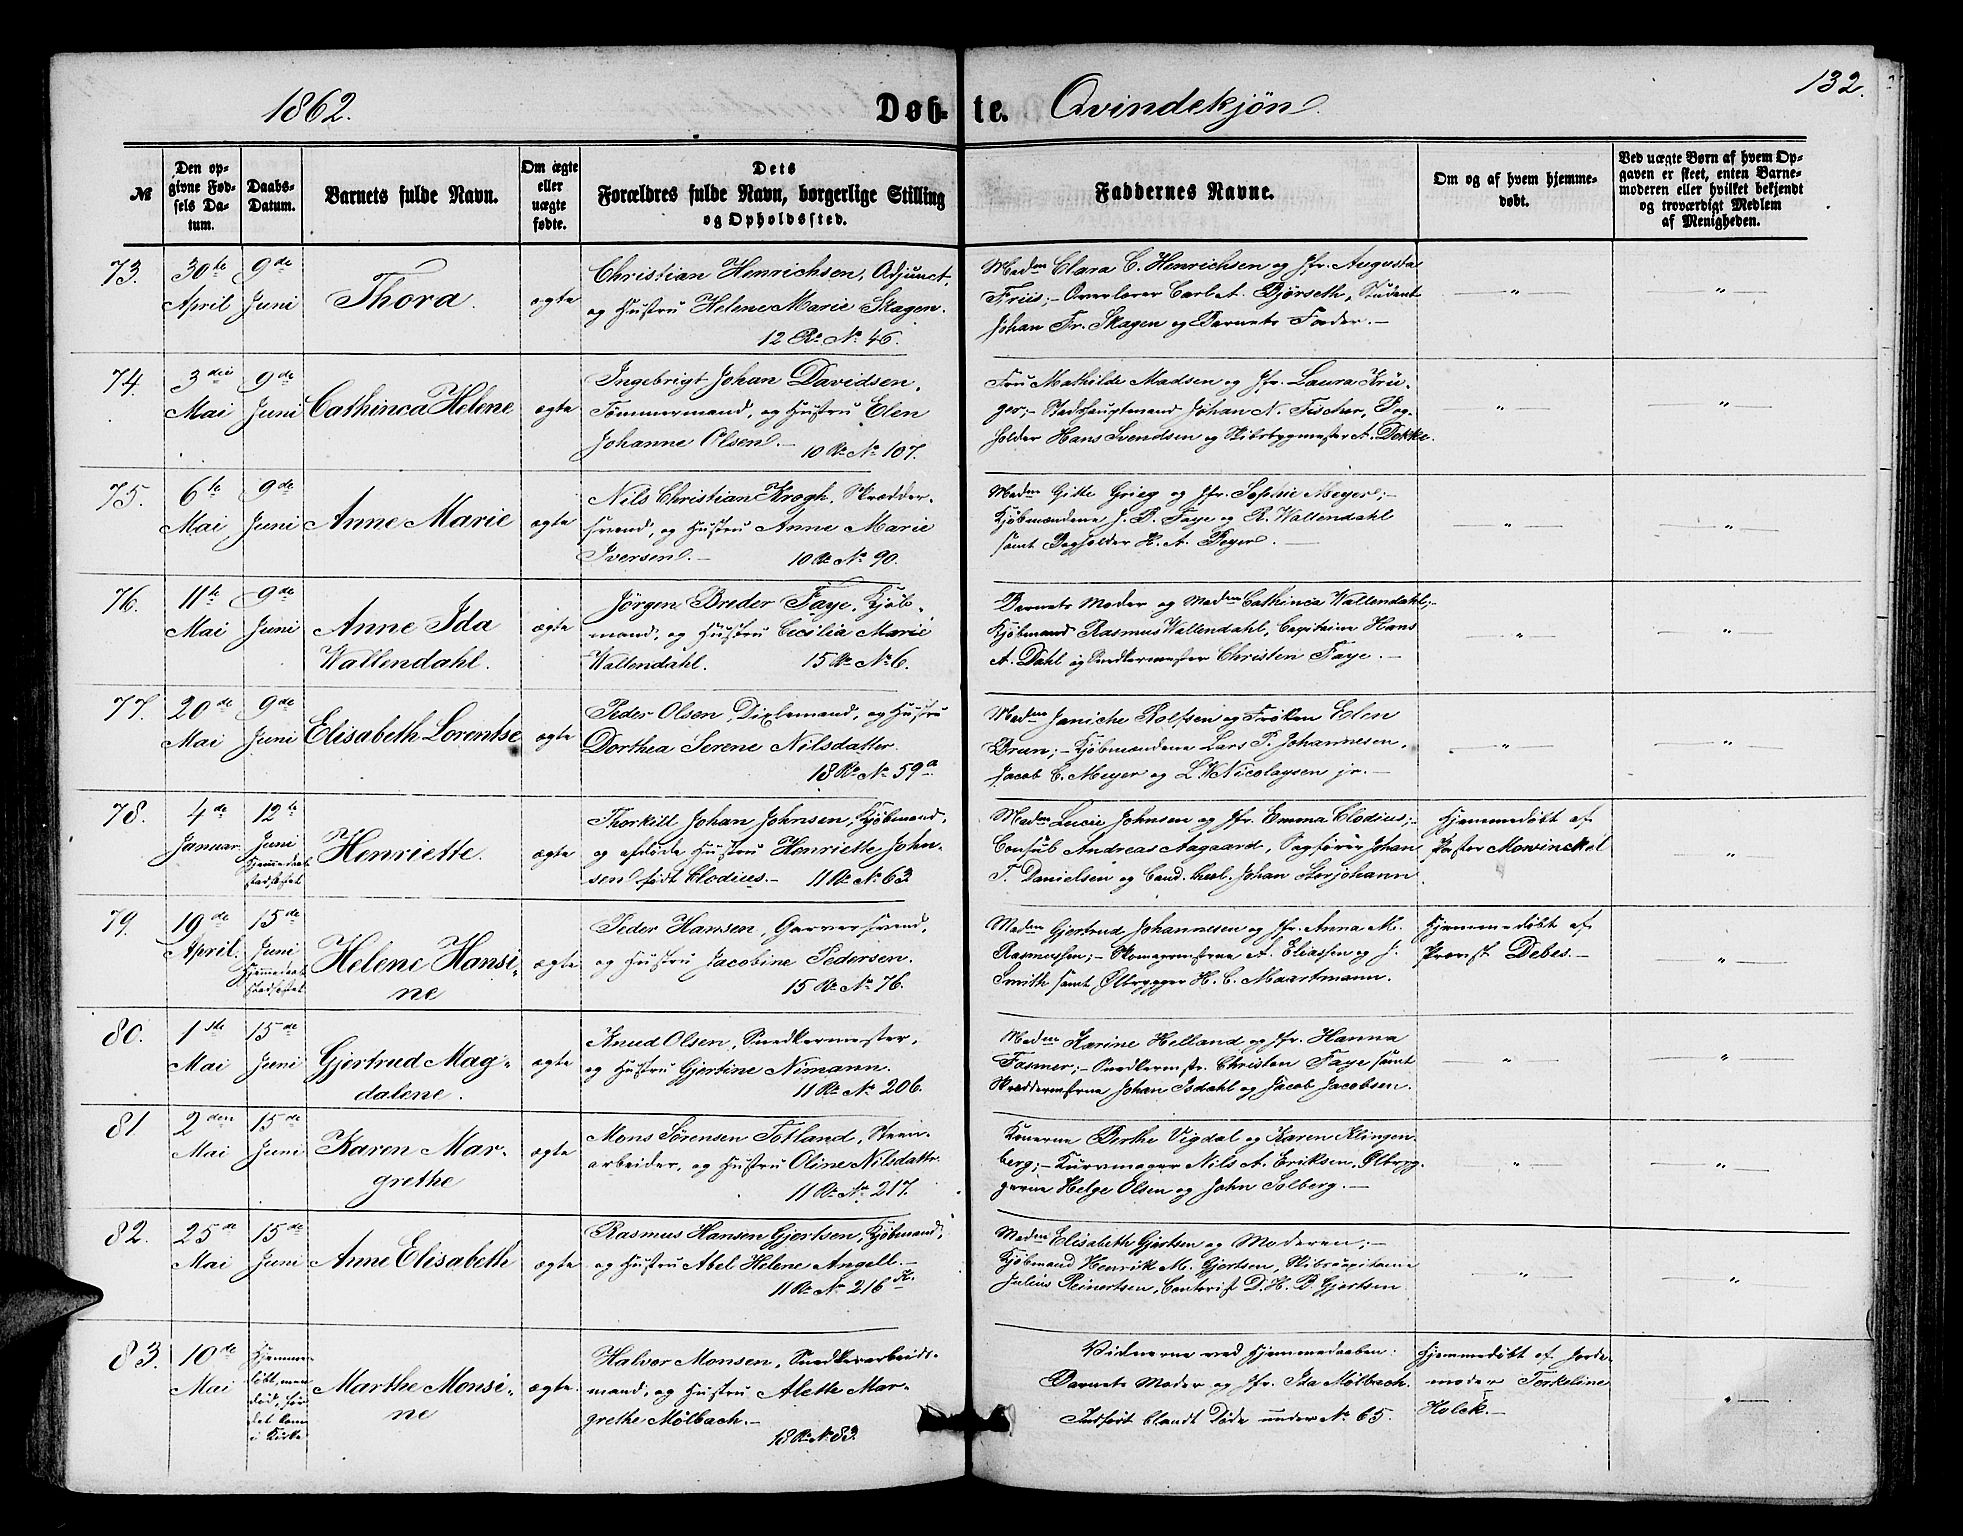 1862.
Døbte. Qvindekjøn.
132.
№
Den opgivne Fødsels Datum.
Daabs-Datum.
Barnets fulde Navn.
Om ægte eller uægte fødte.
Dets Forældres fulde Navn, borgerlige Stilling og Opholdssted.
Faddernes Navne.
Om og af hvem hjemmedøbt.
Ved uægte Børn af hvem Opgaven er skeet, enten Barnemoderen eller hvilket bekjendt og troværdigt Medlem af Menigheden.
73. 30te April 9de Juni Thora. ægte
Christian Henrichsen, Adjunct,
og Hustru Helene Marie Skagen.
12 R. № 46.
Madm Clara C. Henrichsen og Jfr. Augusta
Friis; - Overlærer Carl A. Bjørseth, Student
Johan Fr. Skagen og Barnets Fader. -
74. 3die Mai 9de Juni Cathinca Helene ægte
Ingebrigt Johan Davidsen,
Tømmermand, og Hustru Elen
Johanne Olsen. -
10 R. № 107.
Fru Mathilde Madsen og Jfr. Laura Krü-
ger; - Stadshauptmand Johan N. Fischer, Bog-
holder Hans Svendsen og Skibsbygmester A. Dekke.
75. 6te Mai 9de Juni Anne Marie ægte
Nils Christian Krogh, Skrædder-
svend, og Hustru Anne Marie
Iversen. -
10 R. № 90.
Madm Gitte Grieg og Jfr. Sophie Meyer; -
Kjøbmændene J. B. Faye og R. Wallendahl
samt Bogholder H. A. Beyer. -
76. 11te Mai 9de Juni Anne Ida
Wallendahl. ægte
Jørgen Breder Faye, Kjøb-
mand, og Hustru Cecilia Marie
Wallendahl. 15 R. № 6.
Barnets Moder og Madm Cathinca Wallendahl; -
Kjøbmand Rasmus Wallendahl, Capitaine Hans
A. Dahl og Snedkermester Christen Faye. -
77. 20de Mai 9de Juni Elisabeth Lorentse ægte
Peder Olsen, Dixlemand, og Hustru
Dorthea Serene Nilsdatter.
18 R. № 59a
Madm Janiche Rolfsen og Frøken Elen
Brun; - Kjøbmændene Lars P. Johannesen,
Jacob C. Meyer og L. W. Nicolaysen jr. -
78. 4de Januar 12te Juni Hjemmedaab stadfæstet Henriette. ægte
Thorkild Johan Johnsen, Kjøbmand,
og afdøde Hustru Henriette John-
sen født Clodius. - 11 R. № 63.
Madm Lucie Johnsen og Jfr. Emma Clodius; -
Consul Andreas Aagaard, Sagfører Johan
T. Danielsen og Cand. theol. Johan Storjohann
Hjemmedøbt af
Pastor Mowinckel
79. 19de April. 15de Juni Hjemmedaab stadfæstet Helene Hansi-
ne ægte
Peder Hansen, Garversvend,
og Hustru Jacobine Pedersen.
15 R. № 76.
Madm Gjertrud Johannesen og Jfr. Anna M.
Rasmussen; - Skomagermstrne A. Eliassen og J.
Smith samt Ølbrygger H. C. Maartmann.
Hjemmedøbt af
Provst Debes. -
80. 1ste Mai 15de Juni Gjertrud Mag-
dalene. ægte
Knud Olsen, Snedkermester,
og Hustru Gjertine Nimann.
11 R. № 206.
Madm Karine Helland og Jfr. Hanna
Fasmer; - Snedkermstr. Christen Faye samt
Skræddermstrne Johan Isdahl og Jacob Jacobsen.
81 2den Mai 15de Juni Karen Mar-
grethe ægte
Mons Sørensen Totland, Steen-
arbeider, og Hustru Oline Nilsdattr.
11 R. № 217.
Konerne Berthe Vigdal og Karen Klingen-
berg; - Kurvmager Nils A. Eriksen, Ølbryg-
gerne Helge Olsen og John Solberg. -
82. 25de Mai 15de Juni Anne Elisabeth ægte
Rasmus Hansen Gjertsen, Kjøbmand,
og Hustru Abel Helene Angell. -
11 R. № 216 K.
Madm Elisabeth Gjertsen og Moderen; -
Kjøbmand Henrik M. Gjertsen, Skibscapitaine
Julius Reinertsen, Contorist D. H. B Gjertsen
83. 10de Mai Hjemme-
døbt, men
død, før
det kom
i Kirke Marthe Monsi-
ne ægte.
Halvor Monsen, Snedkerarbeids-
mand, og Hustru Alette Mar-
grethe Mølbach. -
18 R. № 83.
Vidnerne ved Hjemmedaaben:
Barnets Moder og Jfr. Ida Mølbach.
Indført blandt Døde under № 65.
Hjemmedøbt af Jorde-
moder Torkeline
Holck. -